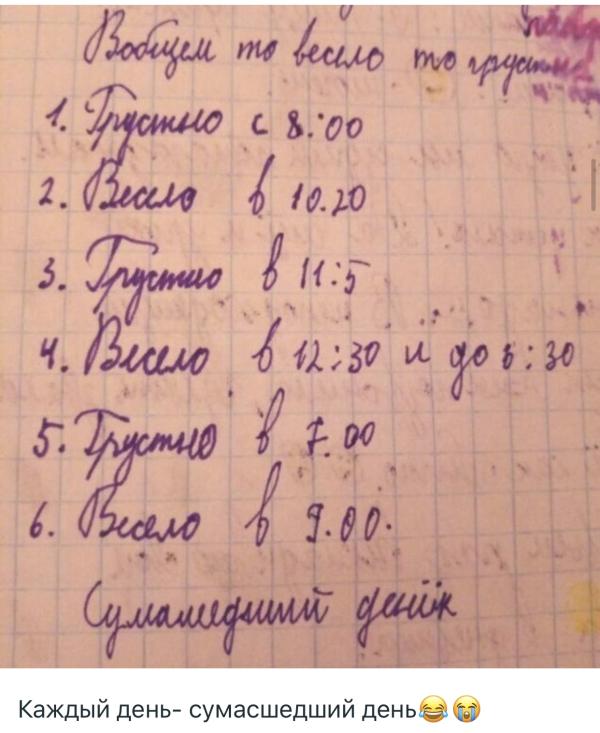 Вобщем то весело то грустно
1. Грустно с 8:00
2. Весело в 10.20
3. Грустно в 11:5
4. Весело в 12:30 и до 6:30
5. Грустно в 7.00
6. Весело в 9.00.
Сумашедший денёк
Каждый день- сумасшедший день😂😭